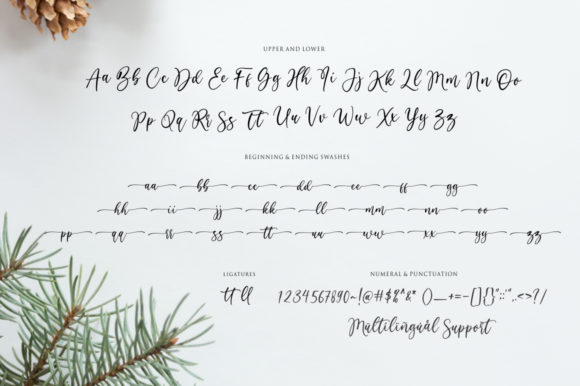 UPPER AND LOWER
Aa Bb Cc Dd Ee Ff Gg Hh Ii Jj Kk Ll Mm Nn Oo
Pp Qq Rr Ss Tt Uu Vv Ww Xx Yy Zz
BEGINNING & ENDING SWASHES
aa bb cc dd ee ff gg
hh ii jj kk ll mm nn oo
pp qq rr ss tt uu ww xx yy zz
LIGATURES
tt ll
NUMERAL & PUNCTUATION
1234567890~!@#$%^&* ()_+=-[]{}"::'",.<>?/
Multilinguàl Support